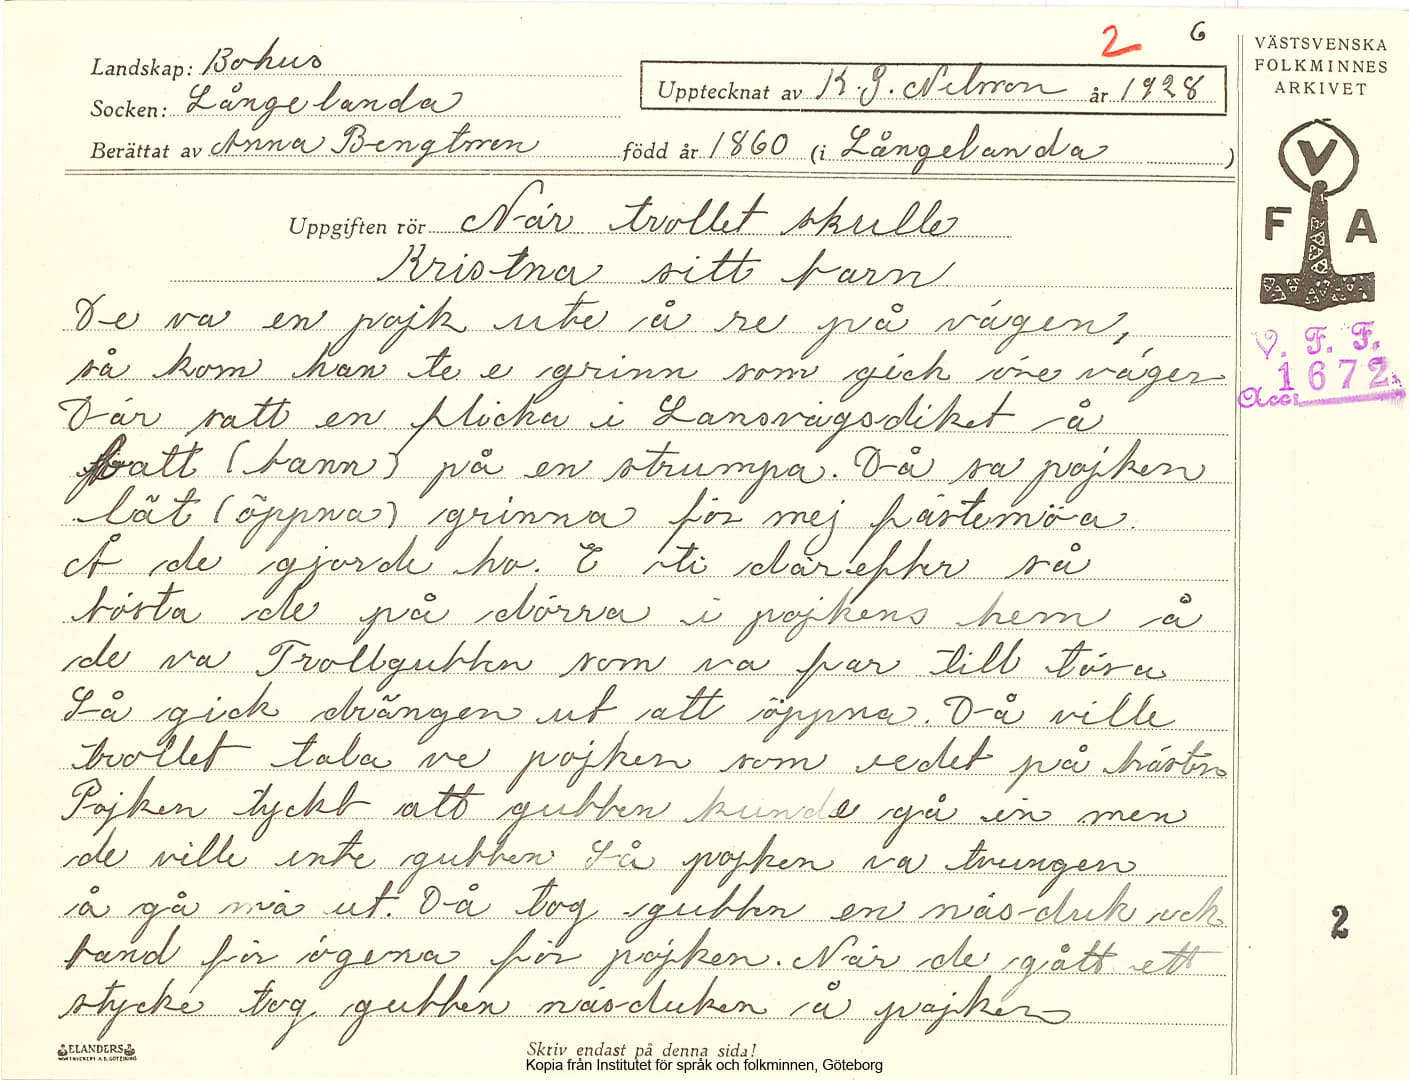 2 6
VÄSTSVENSKA
FOLKMINNES
ARKIVET
Landskap: Bohus
Upptecknat av K. G. Nelsson år 1928
Socken: Långelanda
Berättat av Anna Bengtsson född år 1860 (i Långelanda )
V
F A
Uppgiften rör När trollet skulle
Kristna sitt barn
De va en pojk ute å re på vägen,
så kom han te e grinn som gick öve vägen
Där satt en flicka i Lansvägsdiket å
batt (bann) på en strumpa. Då sa pojken
lät (öppna) grinna för mej fästemöa.
Å de gjorde ho. E ti därefter så
bösta de på dörra i pojkens hem å
de va Trollgubben som va far till tösa
Så gick drängen ut att öppna. Då ville
trollet tala ve pojken som redet på hästen
Pojken tyckt att gubben kunde gå in men
de ville inte gubben Så pojken va tvungen
å gå mä ut. Då tog gubben en näsduk ock
band för ögena för pojken. När de gått ett
stycke tog gubben näsduken å pojken
V. F. F.
1672
Acc.
2
ELANDERS
Skriv endast på denna sida!
Kopia från Institutet för språk och folkminnen, Göteborg